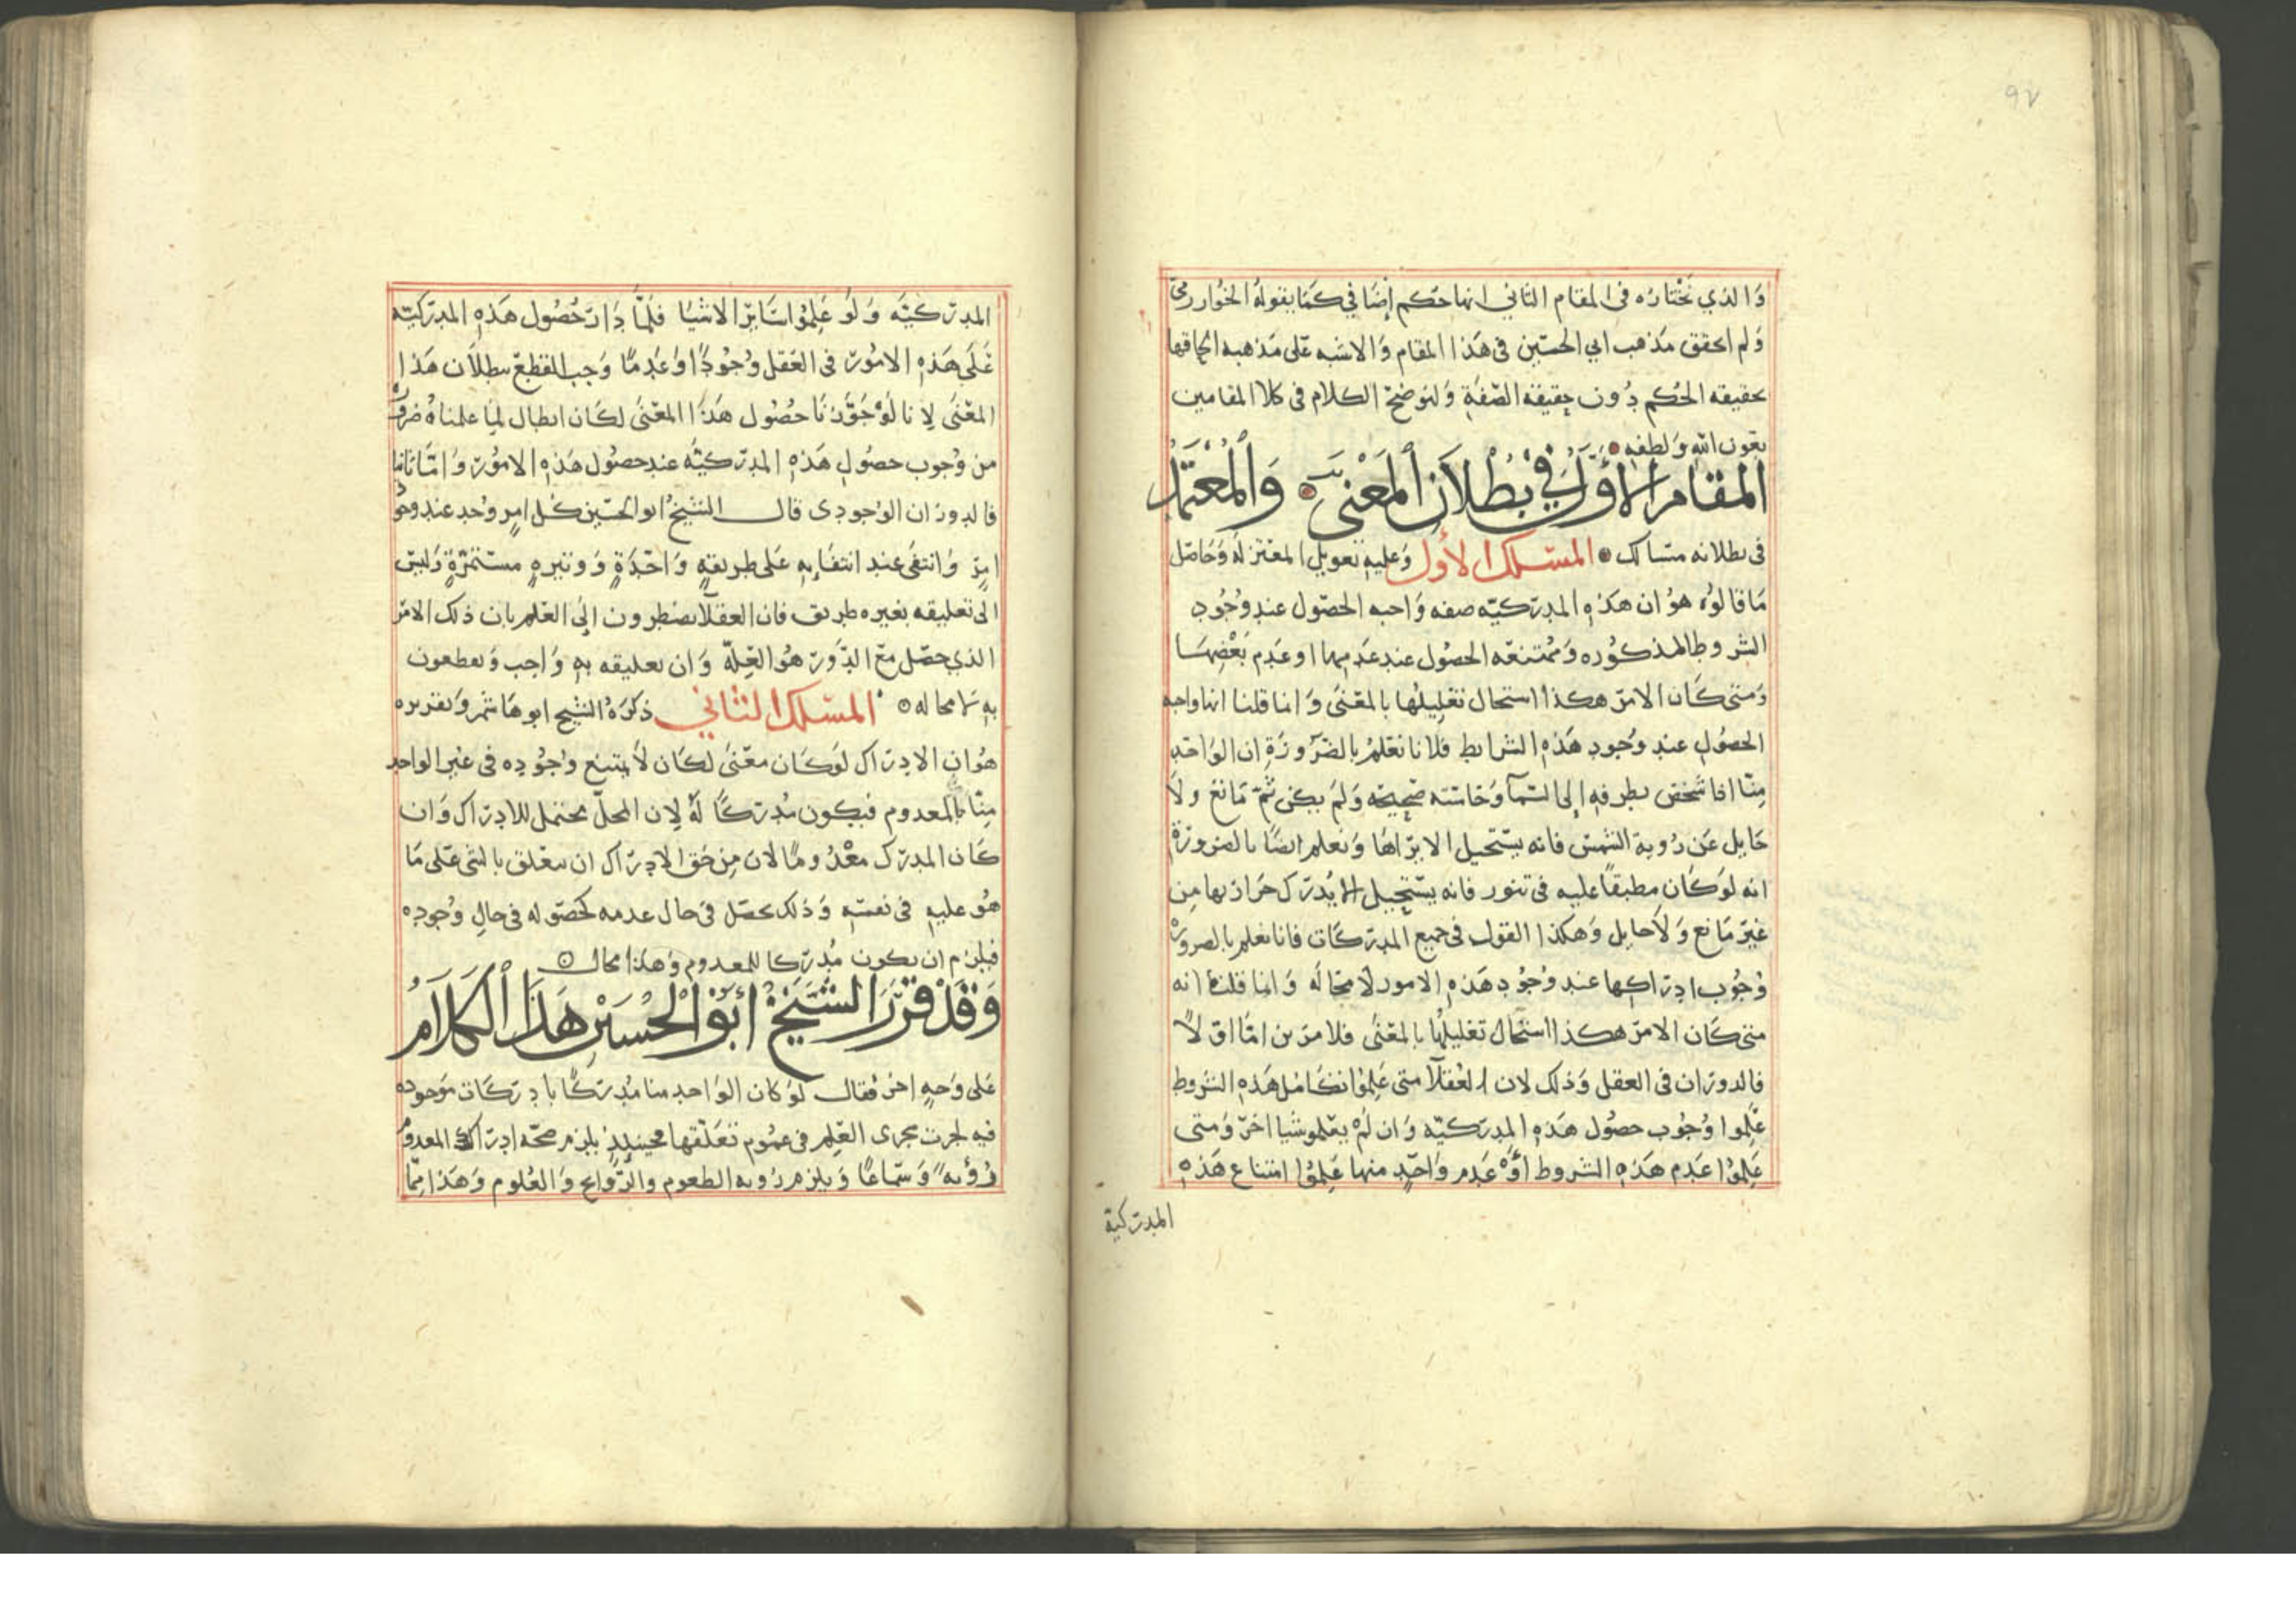 ٩٢
وَالذي نَختَارُه فى المقام الثاني انها حكم إضافي كَمَا يقولهُ الخوارزمي
وَلم احقق مَذهب ابي الحسَين فى هَذا المقام وَالاشبه عَلى مَذهبه الحاقها
بحقيقه الحُكم دُون حِقيقة الصّفَةِ وَلنوضحْ الكلام فى كلا المقامين
بعَون الله وَلطفهِ
المقام الأوّل في بُطْلاَن المَعْنى وَالْمُعْتَمَدُ
فى بطلانه مسَالك المسَلك الأول وَعليهِ تعويل المعتزلَه وَحَاصَل
مَا قالوُه هوُ ان هكذهِ المدرَكيّه صفه وَاجبه الحصُول عند وُجُودِ
الشروط المذكوُره وَمُمْتنعَه الحصُول عند عَدَمِها او عَدم بَعْضِهَا
وَمتى كَان الامرَ هكذا استحال تعَليلُها بالمعَنى وَانما قلنا انها واجبه
الحصُولِ عند وُجود هَذهِ الشرايط فلانا نعَلمُ بالضَرُورَةِ ان الوَاحَد
مِنّا اذا شَخَصَ بطرفهِ إلى السَمآ وَحَاسَته صَحِيحَه وَلَم يكن ثَمَّ مَانع ولاَ
حَايل عَن رُويهَ الشمسَ فانه يسَتحيل الا يرَاهَا وَنعلم ايضًا بالضرورَةِ
انه لوَكَان مطبقًا عليه فى تنور فانه يسَتحِيل الا يُدرَك حَرَارتها مِن
غيَر مَانع وَلاَ حايل وَهكذا القول فى جميع المدرَكَات فانا نعلم بالضرورَة
وُجُوب ادرَاكِها عند وُجُودِ هَذهِ الامور لاَ محَالَه وَانما قلنا انه
متى كَان الامرَ هكذا استحَال تعَليلُها بالمعَنى فلامرَين امّا اوّلاً
فالدورَان فى العقل وَذلك لان العُقلآ متى عَلِمُوا تكَامُل هَذهِ الشروط
عَلِموا وُجُوب حصُول هَذهِ المدرَكيّه وَان لَمْ يعَلموشيا اخرَ وَمتى
عَلِموُا عَدم هَذهِ الشروط أوْ عَدم وَاحَدٍ منها عَلِمُوا امتناع هَذهِ
المدرَكية
المدرَكيَّه وَلَو عَلِمُوا سَايرَ الاشيَا فَلمَّا دَارَ حُصُول هَذهِ المدرَكيّه
عَلَى هَذهِ الامُورَ فى العَقل وُجُودًا وَعَدمًا وَجب القطعَ ببطلاَن هَذا
المعَنى لاِنا لَوْ جَوَّزنَا حصُول هَذا المعَنى لكَان ابطال لِمَا علمناهُ ضرورَة
من وُجوب حصُولِ هَذهِ المدرَكيَّه عند حصُول هَذهِ الامُورَ وَامّا ثانيا
فالدورَان الوُجودى قال الشيخُ ابو الحسَين كلُ امِرٍ وُجد عند وجُود
امِرَ وَانتفَى عند انتفَايهِ عَلى طريقهٍ وَاحَدَةٍ وَوَتيرهٍ مسَتمَرّةٍ وَليسَ
الى تعَليقه بغيره طريق فان العقلآ يضطرون الى العَلم بان ذلك الامرَ
الذي حصَل مَعَ الدَورَ هوُ العِلّه وَان تعليقه بهِ وَاجب وَيقطعون
بهِ لا محاله المسَلك الثاني ذكرَهُ الشيخ ابو هَاشم وَتقريره
هوُ ان الادرَاك لوَكَان معَنى لكَان لاَ يمتنع وُجُودِه فى عيَن الواحد
مِنّا بالمعدوم فيكون مُدرَكًا لَهُ لاِن المحلّ محتمل للادرَاك وَان
كَان المدرَك معْدُومًا لاَن مِن حَق الادرَاك ان يتعَلق بالشى عَلى مَا
هوُ عليهِ فى نفسَهِ وَذلك يحصَل فى حَال عدمه لحصَوله فى حَالِ وُجودِه
فيلزم ان يكون مُدرِكا للمعدوم وَهذا محال
وَقَدْ قَرَّرَ الشَّيْخُ أبُوْ الْحُسَيْنِ هَذَا الكَلاَمُ
عَلى وَجهٍ اخرَ فقال لوَ كان الوَاحد منا مُدرَكًا بادِرَكَات مَوجوده
فيه لجرت مجرى العَلِم فى عمُوم تعَلّقها فحينيذٍ يلزم صحَه ادرَاك المعدوم
رُؤيهً وَسَمَاعًا وَيلزم رُويه الطعوم والرَّوايح وَالعُلوم وَهَذا مِمّا